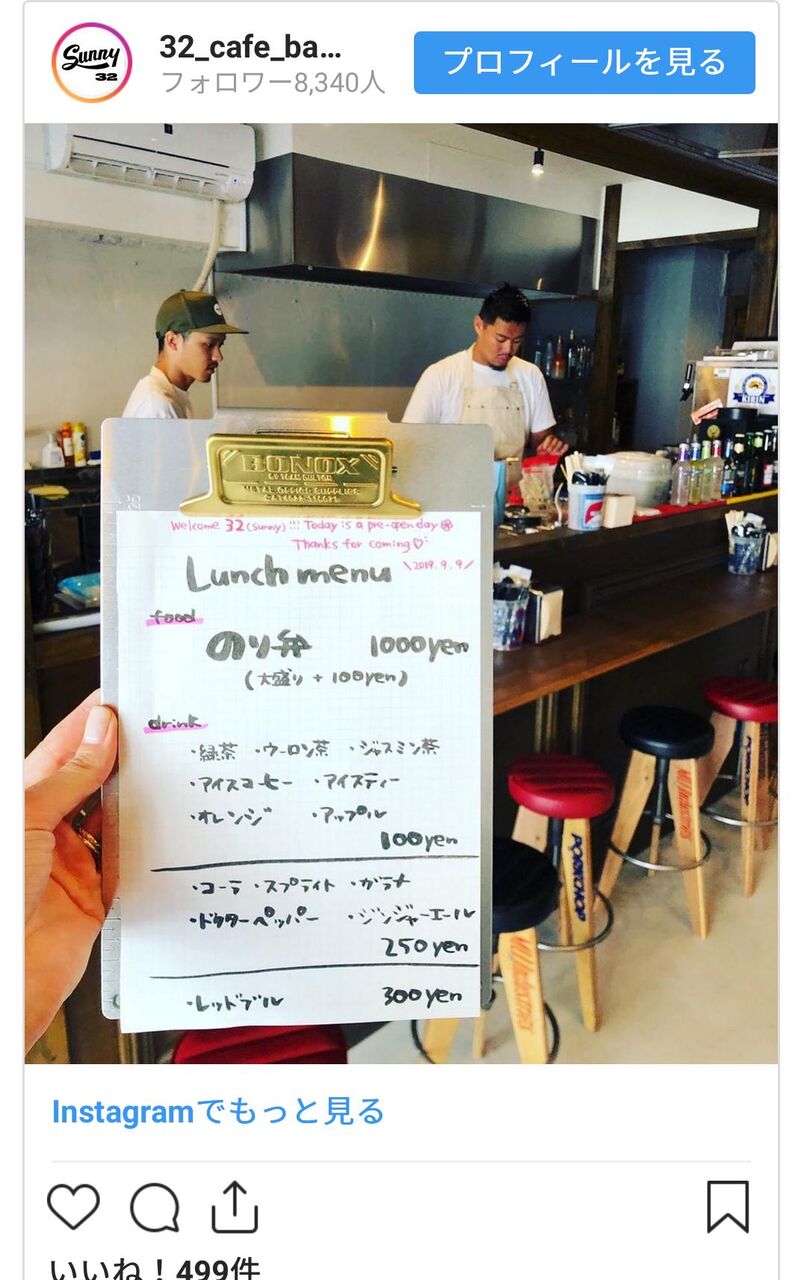 Sunny
32
32_cafe_ba…
フォロワー8,340人
プロフィールを見る
KIRIN
BONOX
METAL OFFICE SUPPLIES
Welcome 32 (sunny) !!! Today is a pre-open day
Thanks for coming♡
\2019.9.9/
Lunch menu
food
のり弁 1000yen
(大盛り + 100yen)
drink
・緑茶 ・ウーロン茶 ・ジャスミン茶
・アイスコーヒー ・アイスティー
・オレンジ ・アップル
100yen
・コーラ ・スプライト ・ガラナ
・ドクターペッパー ・ジンジャーエール
250yen
・レッドブル 300yen
Instagramでもっと見る
いいね！499件